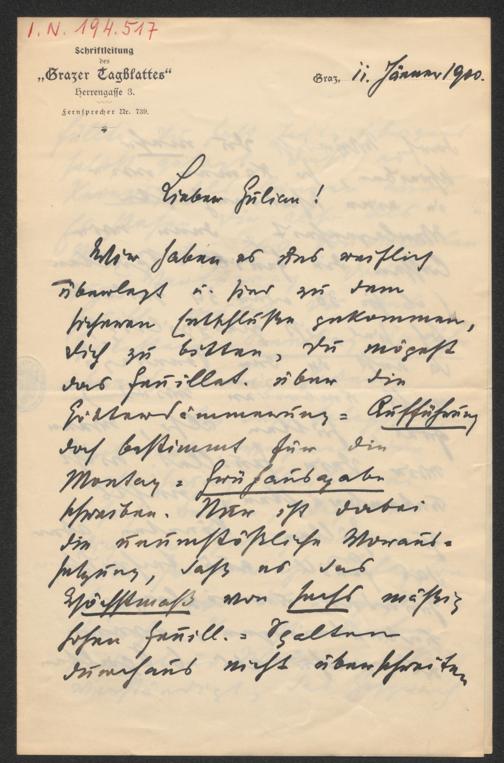 I.N. 194.517
Schriftleitung
des
„Grazer Tagblattes“
Herrengasse 3.
Fernsprecher Nr. 739.
Graz, 11. Jänner 1900.
Lieber Julian!
Wir haben es uns reiflich
überlegt u. sind zu dem
sicheren Entschluße gekommen,
Dich zu bitten, Du mögest
das Feuillet. über die
Götterdämmerung-Aufführung
doch bestimmt für die
Montag-Frühausgabe
schreiben. Nur ist dabei
die unumstößliche Voraus-
setzung, daß es das
Höchstmaß von sechs mäßig
hohen Feuill.-Spalten
durchaus nicht überschreiten